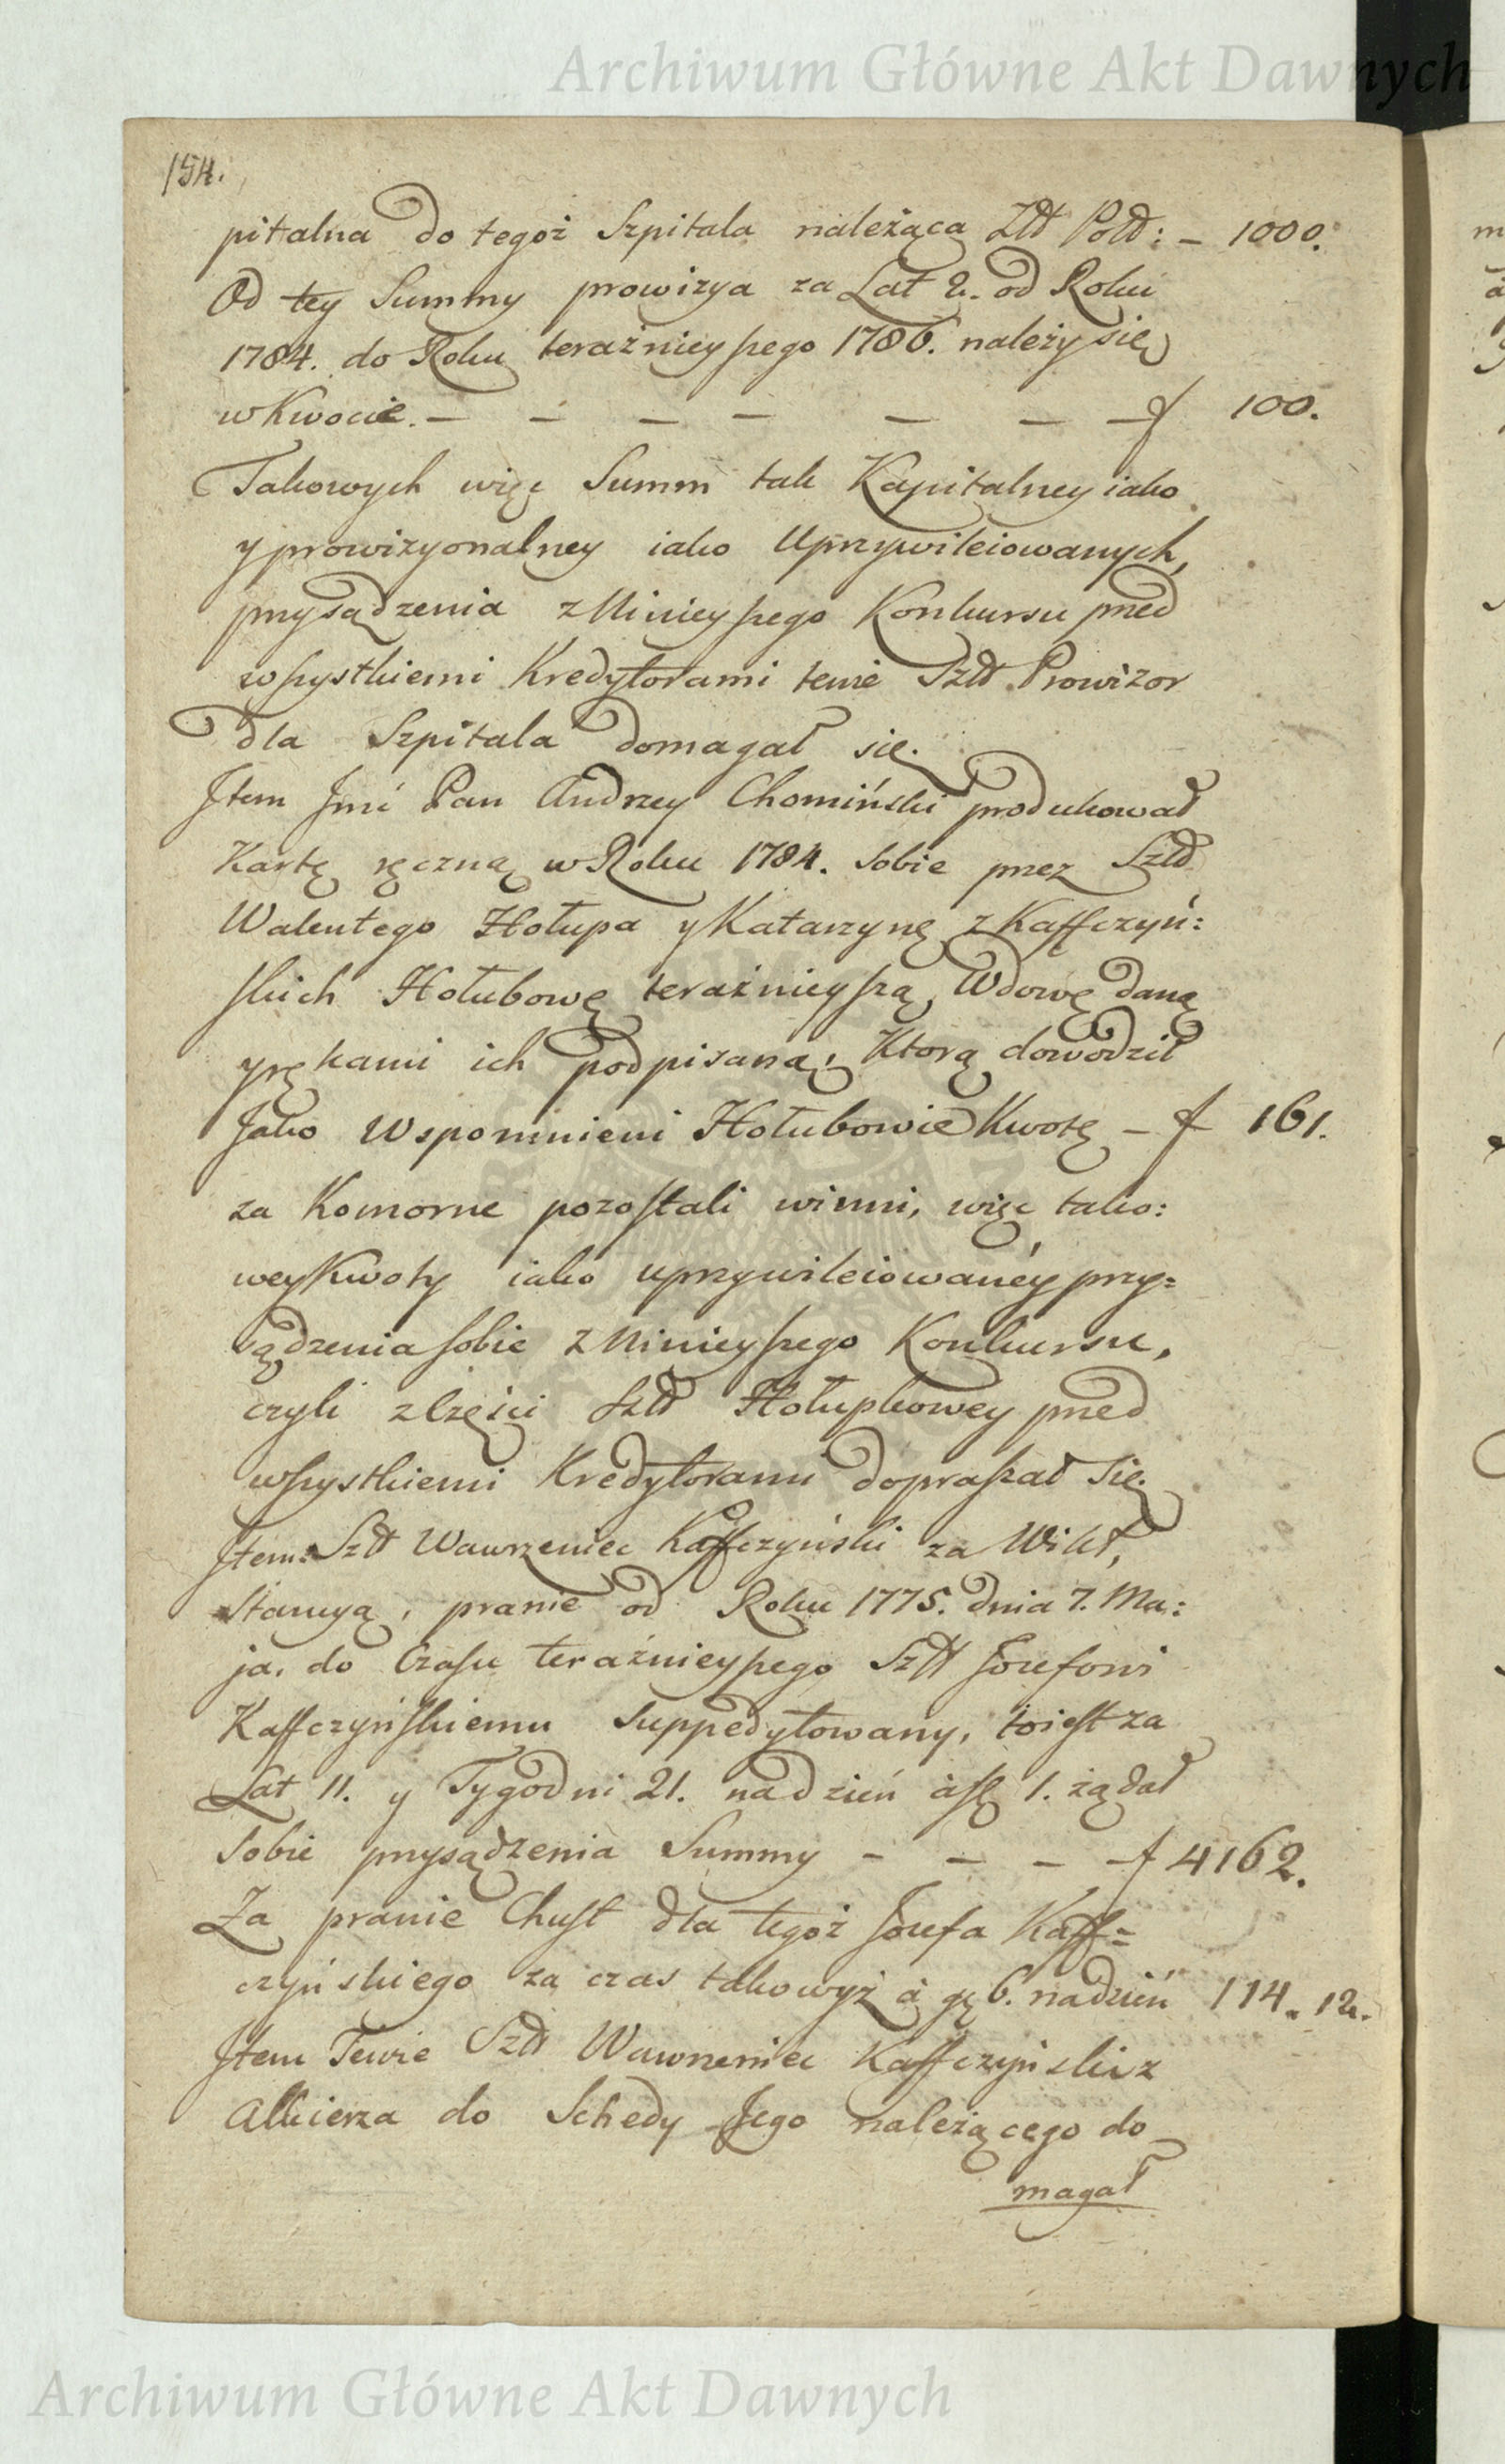 Archiwum Główne Akt Dawnych
154.
pitalna do tegoż Szpitala należąca Złł Poll: – 1000.
Od tey Summy prowizya za Lat 2. od Roku
1784. do Roku teraźnieyszego 1786. należy się
w Kwocie. – – – – – – – f 100.
Takowych więc Summ tak Kapitalney iako
y prowizyonalney iako Uprzywileiowanych,
przysądzenia z Ninieyszego Konkursu przed
wszystkiemi Kredytorami tenże Szll Prowizor
dla Szpitala domagał się.
Jtem Jmć Pan Andrzey Chomiński produkował
Kartę ręczną w Roku 1784. Sobie przez Szll
Walentego Hołupa y Katarzynę z Kaffczyń:
skich Hołubowę teraźnieyszą Wdowę daną
y rękami ich podpisaną, Ktorą dowodził
Jako Wspomnieni Hołubowie Kwotę – f 161.
za Komorne pozostali winni, więc tako:
wey Kwoty iako uprzywileiowaney przy=
sądzenia sobie z Ninieyszego Konkursu,
czyli z Części Szll Hołupkowey przed
wszystkiemi Kredytorami dopraszał się.
Jtem: Szll Wawrzeniec Kaffczyński za Wikt,
Stancyą, pranie od Roku 1775. dnia 7. Ma:
ja, do Czasu teraźnieyszego Szll Jozefowi
Kaffczyńskiemu Suppedytowany, to iest za
Lat 11. y Tygodni 21. na dzień 1. żądał
Sobie przysądzenia Summy – – – – f 4162.
Za pranie Chust dla tegoż Jozefa Kaff=
czyńskiego za czas takowyż à gę 6. na dzień 114. 12.
Jtem Tenże Szll Wawrzeniec Kaffczyński z
Alkierza do Schedy Jego należącego do_
magał
Archiwum Główne Akt Dawnych